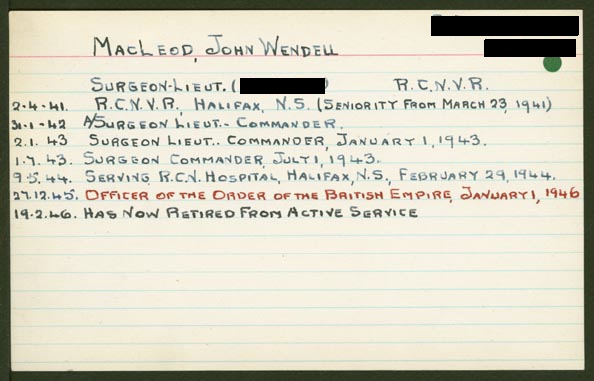 MacLeod, John Wendell
Surgeon-Lieut. ( ) R.C.N.V.R.
2-4-41. R.C.N.V.R., Halifax, N.S. (Seniority from March 23, 1941)
31-1-42 A/Surgeon Lieut.- Commander.
2.1.43 Surgeon Lieut.. Commander, January 1, 1943.
1.7.43. Surgeon Commander, July 1, 1943.
9.5.44. Serving R.C.N. Hospital, Halifax, N.S., February 29, 1944.
27.12.45. Officer of the Order of the British Empire, January 1, 1946
19.2.46. Has now retired from active service